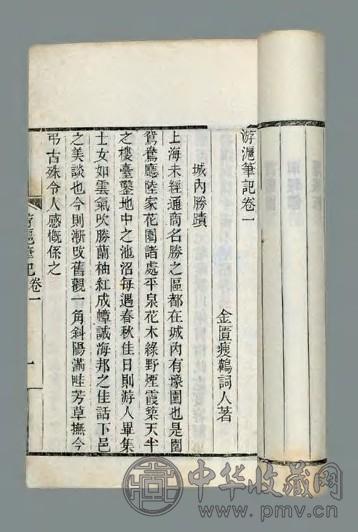 游滬筆記卷一
金匱瘦鶴詞人著
城內勝蹟
上海未經通商名勝之區都在城內有豫園也是園
鴛鴦廳陸家花園諸處平泉花木綠野煙霞築天半
之樓臺鑿地中之池沼每遇春秋佳日則游人畢集
士女如雲氣吹勝蘭袖紅成幛誠海邦之佳話下邑
之美談也今則漸改舊觀一角斜陽滿畦芳草撫今
弔古殊令人感慨係之
游滬筆記卷一
一
中华收藏网
www.pmv.cn